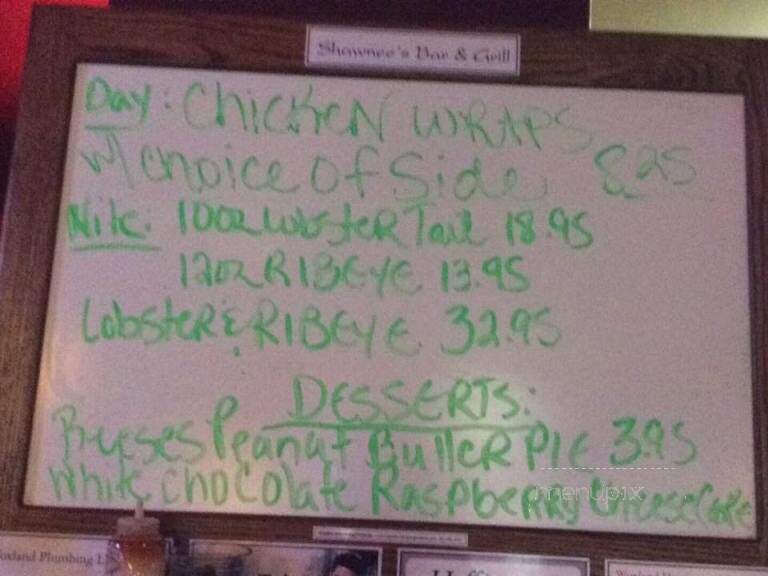 Shawnee's Bar & Grill
Day: Chicken WRAPS
w/ choice of Side 8.25
Nite: 10oz Lobster Tail 18.95
12oz RIBEYE 13.95
Lobster & RIBEYE 32.95
DESSERTS:
Reeses Peanut Butter Pie 3.95
White Chocolate Raspberry Cheese Cake
menupix
oxland Plumbing